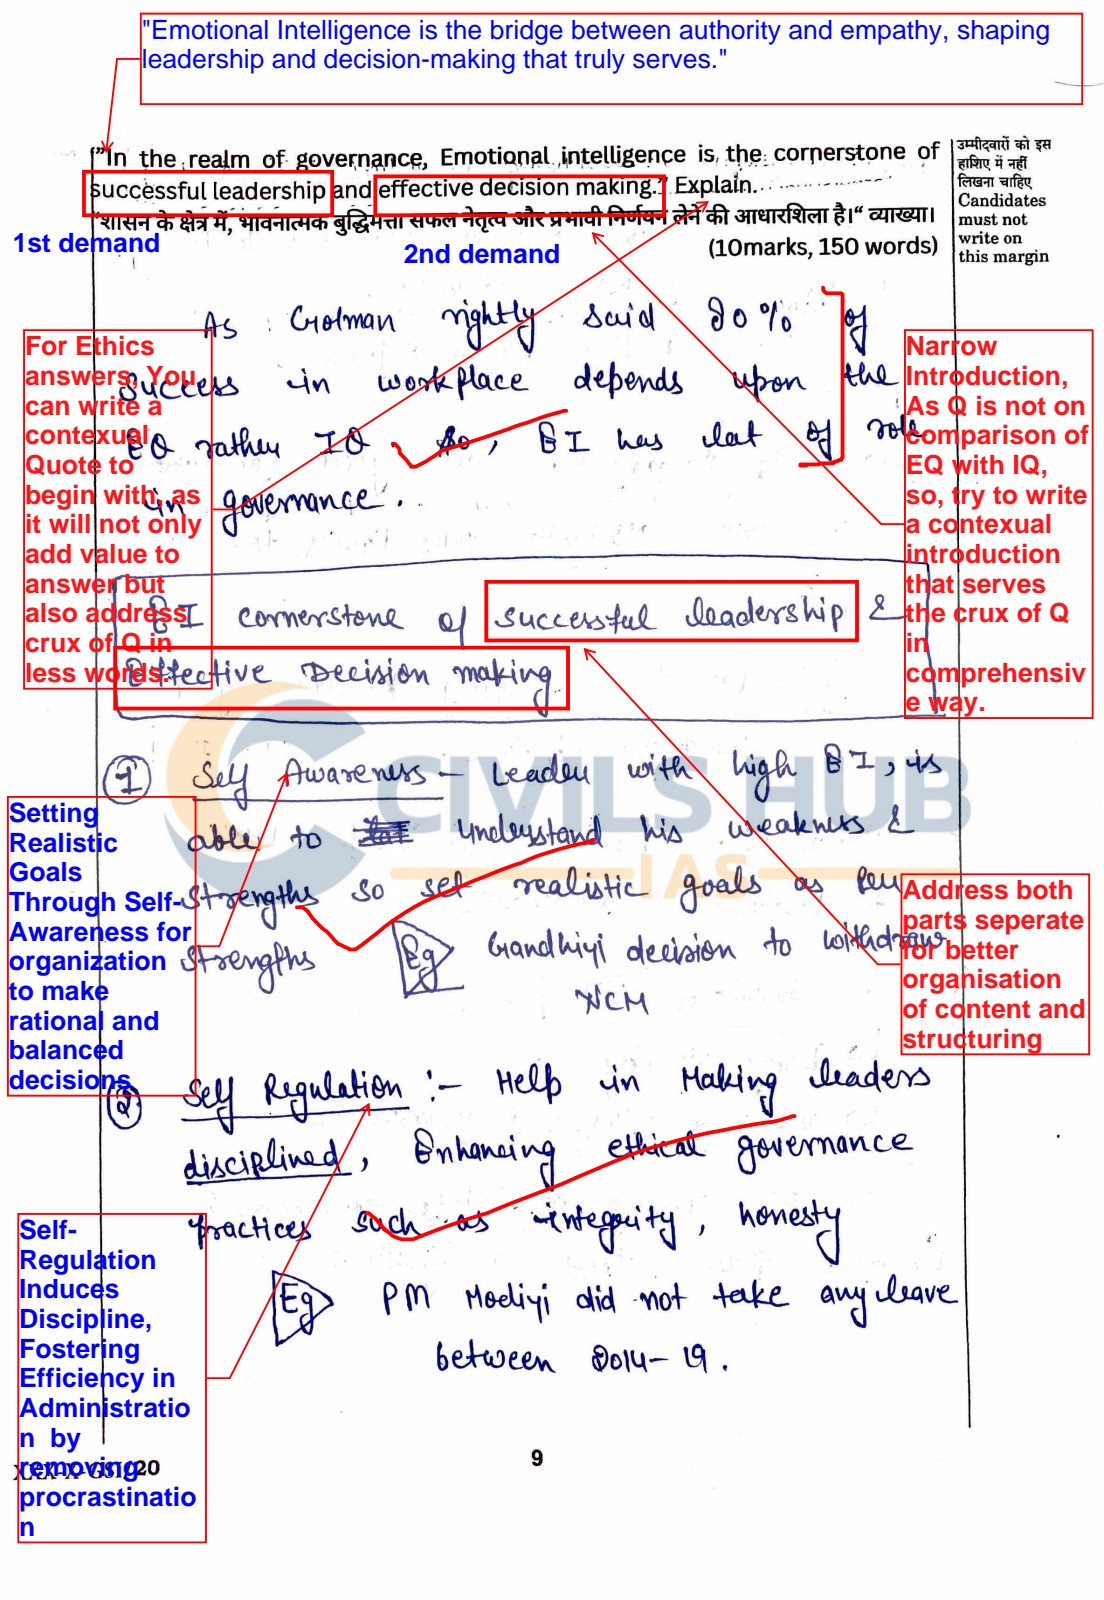 "Emotional Intelligence is the bridge between authority and empathy, shaping
leadership and decision-making that truly serves."
"In the realm of governance, Emotional intelligence is the cornerstone of
successful leadership and effective decision making." Explain.
"शासन के क्षेत्र में, भावनात्मक बुद्धिमत्ता सफल नेतृत्व और प्रभावी निर्णयन लेने की आधारशिला है।" व्याख्या।
(10marks, 150 words)
1st demand
2nd demand
उम्मीदवारों को इस
हाशिए में नहीं
लिखना चाहिए
Candidates
must not
write on
this margin
As Golman rightly said 80% of
success in workplace depends upon the
EQ rather IQ so, EI has lot of role
in governance.
For Ethics
answers, You
can write a
contexual
Quote to
begin with, as
it will not only
add value to
answer but
also address
crux of Q in
less words.
Narrow
Introduction,
As Q is not on
comparison of
EQ with IQ,
so, try to write
a contexual
introduction
that serves
the crux of Q
in
comprehensiv
e way.
EI cornerstone of successful leadership &
Effective Decision making
CIVILS HUB
IAS
① Self Awareness - Leader with high EI, is
able to understand his weakness &
strengths so set realistic goals as per
strengths Eg Gandhiji decision to withdraw
NCM
Setting
Realistic
Goals
Through Self-
Awareness for
organization
to make
rational and
balanced
decisions
Address both
parts seperate
for better
organisation
of content and
structuring
② Self Regulation :- Help in Making leaders
disciplined, Enhancing ethical governance
practices such as integrity, honesty
Eg PM Modiji did not take any leave
between 2014-19.
Self-
Regulation
Induces
Discipline,
Fostering
Efficiency in
Administratio
n by
removing
procrastinatio
n
9